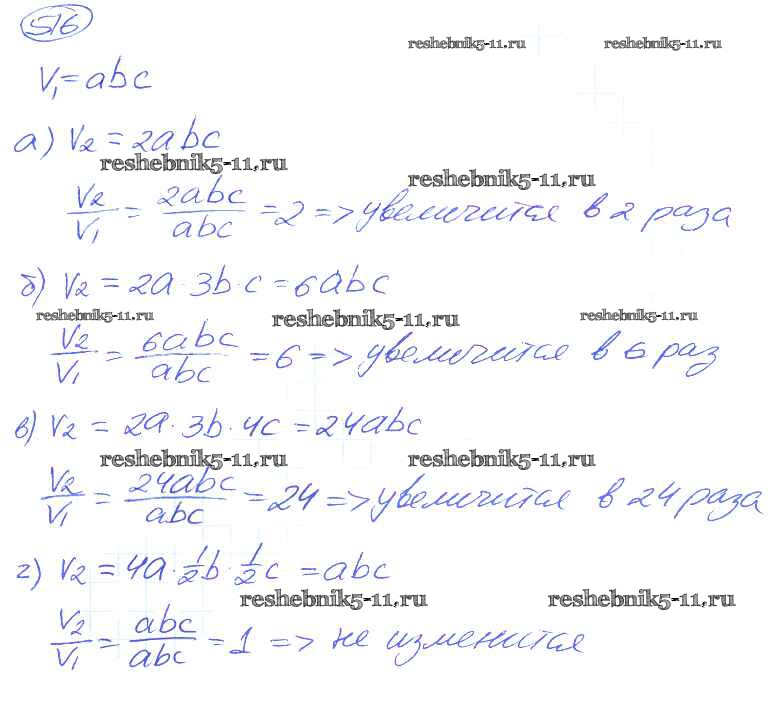 516
reshebnik5-11.ru reshebnik5-11.ru
V₁ = abc
а) V₂ = 2abc
reshebnik5-11.ru
reshebnik5-11.ru
V₂/V₁ = 2abc/abc = 2 => увеличится в 2 раза
б) V₂ = 2a · 3b · c = 6abc
reshebnik5-11.ru reshebnik5-11.ru reshebnik5-11.ru
V₂/V₁ = 6abc/abc = 6 => увеличится в 6 раз
в) V₂ = 2a · 3b · 4c = 24abc
reshebnik5-11.ru reshebnik5-11.ru
V₂/V₁ = 24abc/abc = 24 => увеличится в 24 раза
г) V₂ = 4a · 1/2b · 1/2c = abc
reshebnik5-11.ru reshebnik5-11.ru
V₂/V₁ = abc/abc = 1 => не изменится